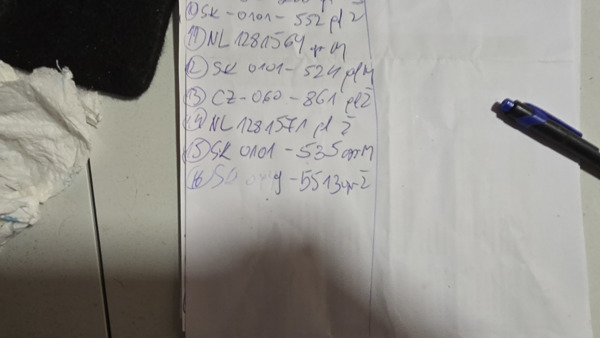 10 SK-0101-552 pl Ž
11 NL 1281564 m
12 SK 0101-524 pl M
13 CZ-060-861 pl Ž
14 NL 1281571 pl Ž
15 SK 0101-535 M
16 -5513 Ž